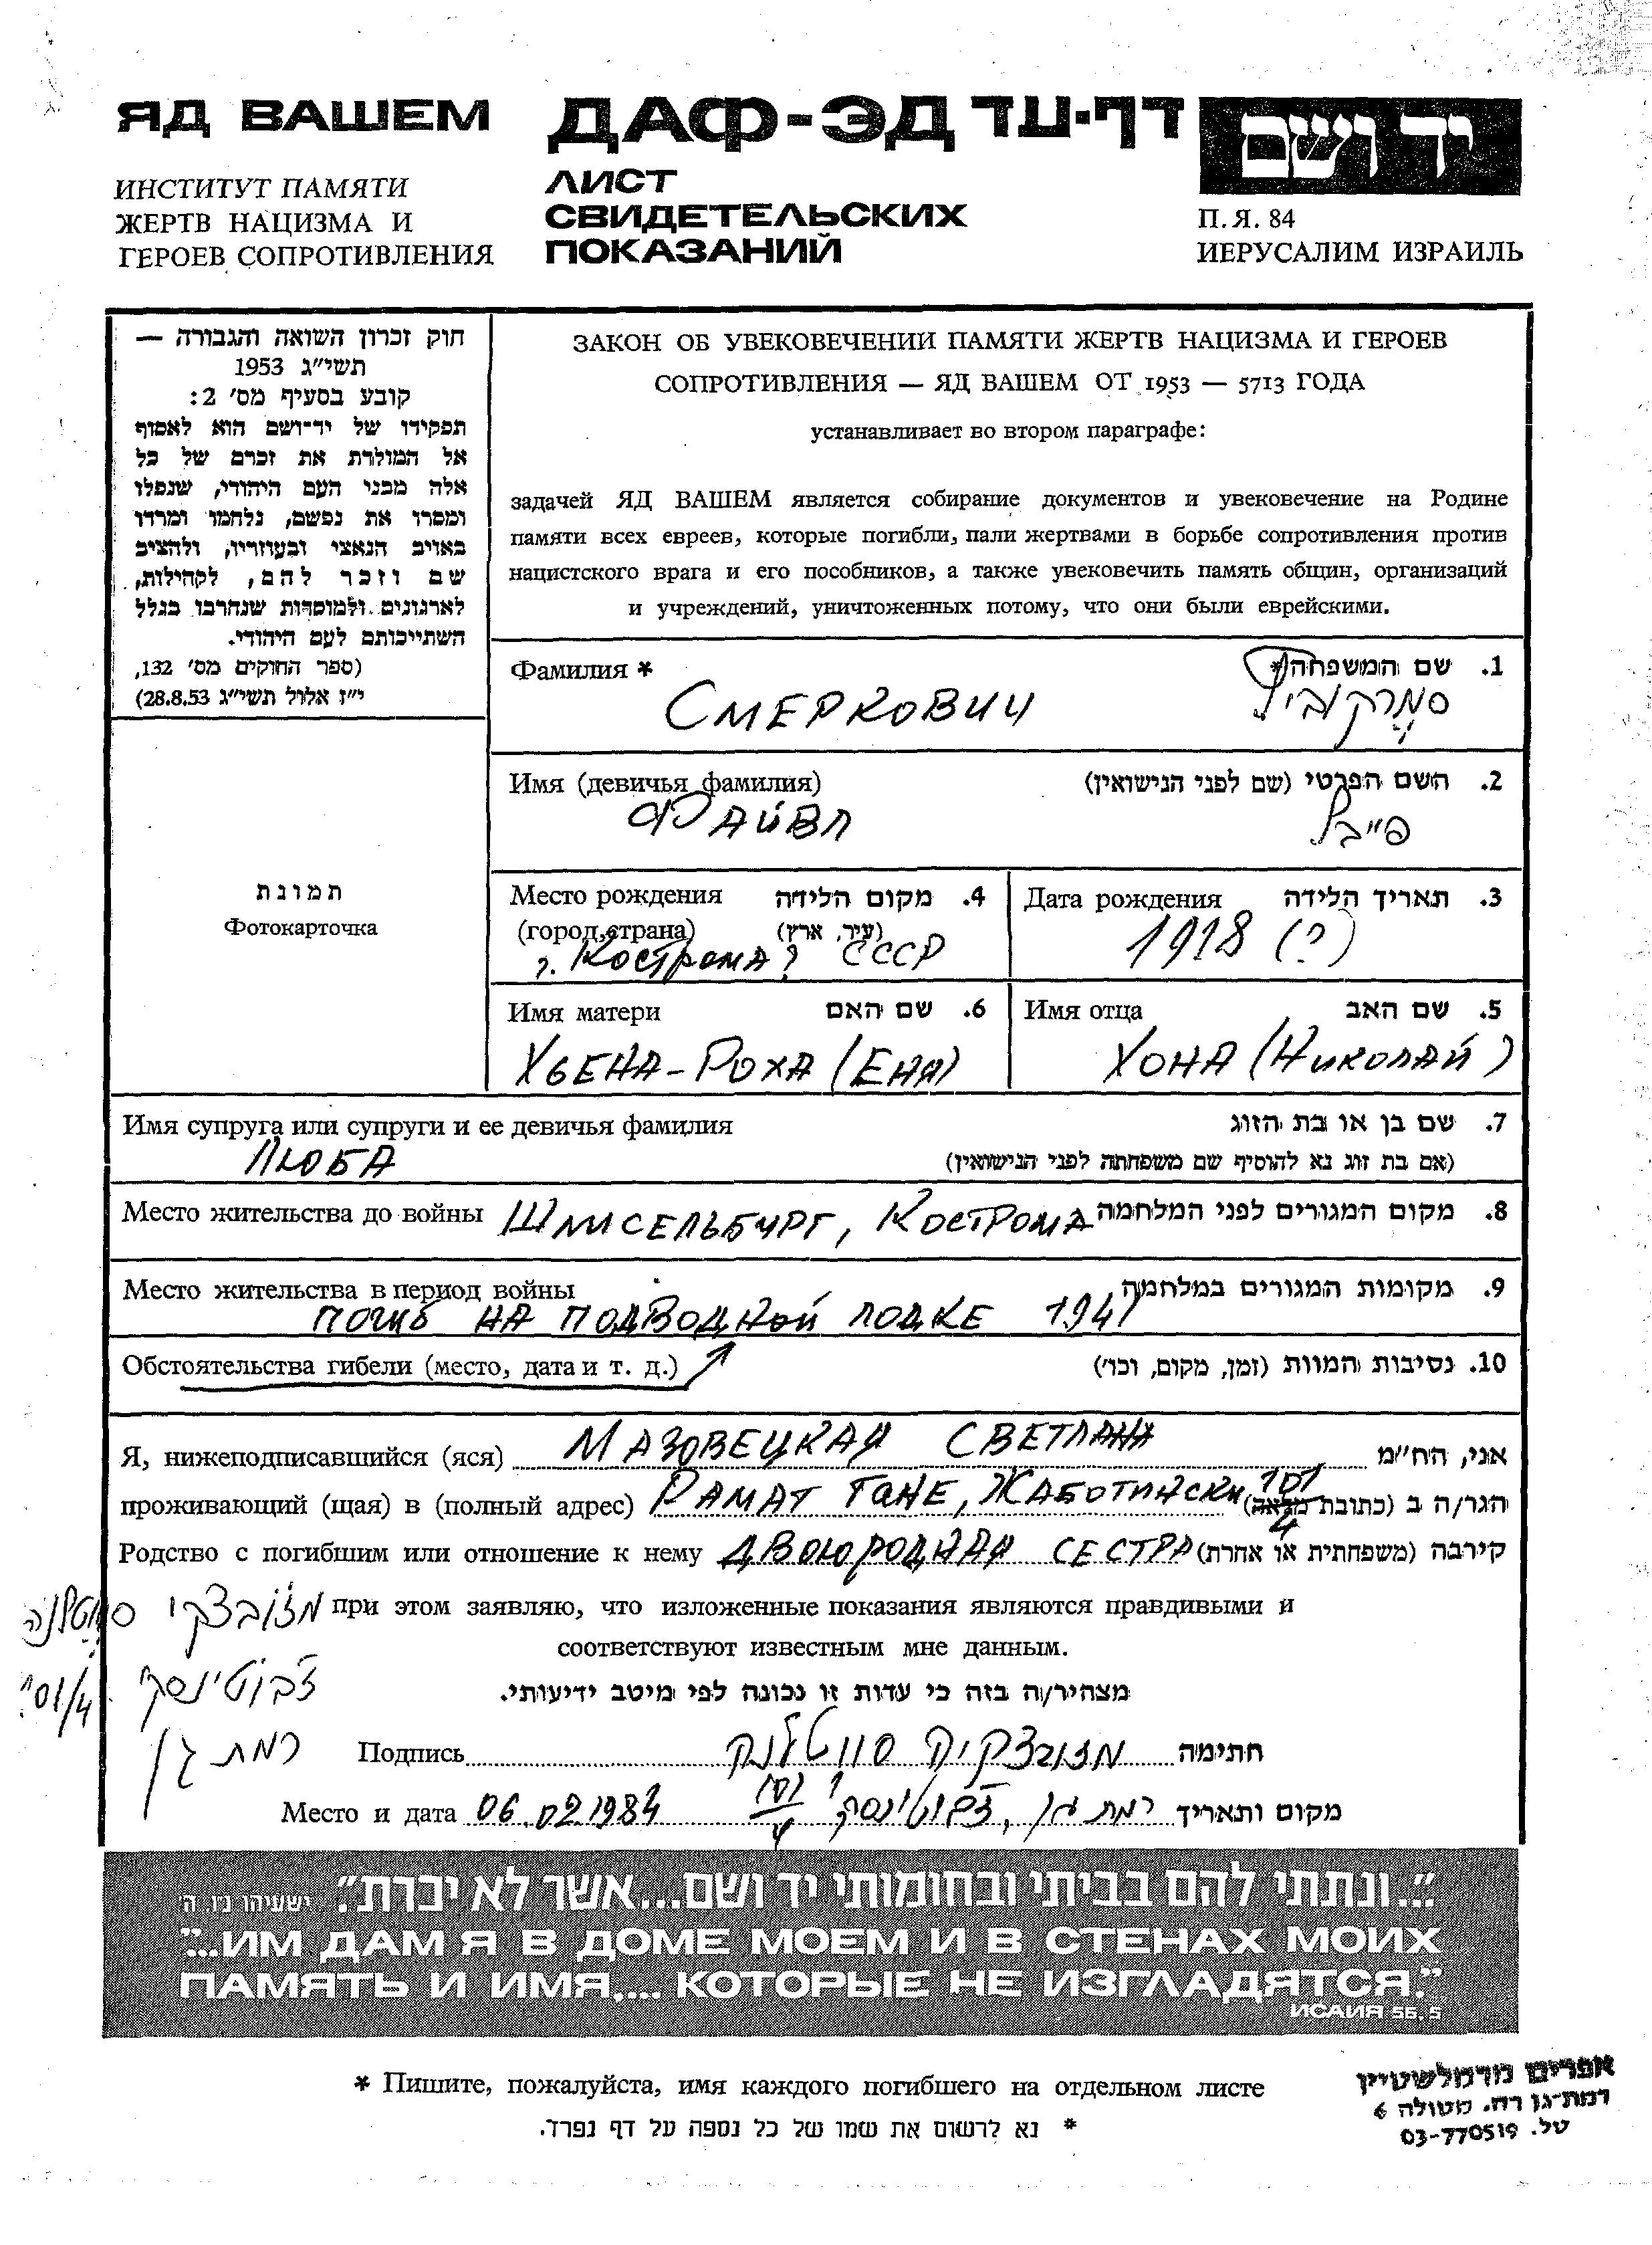 ЯД ВАШЕМ
ИНСТИТУТ ПАМЯТИ
ЖЕРТВ НАЦИЗМА И
ГЕРОЕВ СОПРОТИВЛЕНИЯ
ДАФ-ЭД דף-עד
ЛИСТ
СВИДЕТЕЛЬСКИХ
ПОКАЗАНИЙ
יד ושם
П.Я. 84
ИЕРУСАЛИМ ИЗРАИЛЬ
חוק זכרון השואה והגבורה —
תשי״ג 1953
קובע בסעיף מס׳ 2:
תפקידו של יד־ושם הוא לאסוף
אל המולדת את זכרם של כל
אלה מבני העם היהודי, שנפלו
ומסרו את נפשם, נלחמו ומרדו
באויב הנאצי ובעוזריו, ולהציב
שם וזכר להם, לקהילות,
לארגונים ולמוסדות שנחרבו בגלל
השתייכותם לעם היהודי.
(ספר החוקים מס׳ 132,
י״ז אלול תשי״ג 28.8.53)
תמונת
Фотокарточка
ЗАКОН ОБ УВЕКОВЕЧЕНИИ ПАМЯТИ ЖЕРТВ НАЦИЗМА И ГЕРОЕВ
СОПРОТИВЛЕНИЯ — ЯД ВАШЕМ ОТ 1953 — 5713 ГОДА
устанавливает во втором параграфе:
задачей ЯД ВАШЕМ является собирание документов и увековечение на Родине
памяти всех евреев, которые погибли, пали жертвами в борьбе сопротивления против
нацистского врага и его пособников, а также увековечить память общин, организаций
и учреждений, уничтоженных потому, что они были еврейскими.
Фамилия * 1. שם המשפחה*
Смеркович סמרקוביץ
Имя (девичья фамилия) 2. השם הפרטי (שם לפני הנישואין)
Файвл פייבל
Место рождения 4. מקום הלידה
(город, страна) (עיר, ארץ)
г. Кострома? СССР
Дата рождения 3. תאריך הלידה
1918 (?)
Имя матери 6. שם האם
Хьена-Роха (Еня)
Имя отца 5. שם האב
Хона (Николай)
Имя супруга или супруги и ее девичья фамилия 7. שם בן או בת הזוג
Люба (אם בת זוג נא להוסיף שם משפחתה לפני הנישואין)
Место жительства до войны Шлисельбург, Кострома 8. מקום המגורים לפני המלחמה
Место жительства в период войны 9. מקומות המגורים במלחמה
погиб на подводной лодке 1941
Обстоятельства гибели (место, дата и т. д.) 10. נסיבות המוות (זמן, מקום, וכו׳)
Я, нижеподписавшийся (яся) Мазовецкая Светлана אני, הח״מ
проживающий (щая) в (полный адрес) Рамат Гане, Жаботински 101/4 הגר/ה ב (כתובת מלאה)
Родство с погибшим или отношение к нему двоюродная сестра קירבה (משפחתית או אחרת)
מזובצקי סווטלנה при этом заявляю, что изложенные показания являются правдивыми и
соответствуют известным мне данным.
ז׳בוטינסקי 101/4
מצהיר/ה בזה כי עדות זו נכונה לפי מיטב ידיעותי.
רמת גן
Подпись מזובצקיה סווטלנה חתימה
Место и дата 06.02.1984 רמת גן, ז׳בוטינסקי 101/4 מקום ותאריך
״...ונתתי להם בביתי ובחומותי יד ושם...אשר לא יכרת״. ישעיהו נ״ו, ה׳
"...ИМ ДАМ Я В ДОМЕ МОЕМ И В СТЕНАХ МОИХ
ПАМЯТЬ И ИМЯ.... КОТОРЫЕ НЕ ИЗГЛАДЯТСЯ."
ИСАИЯ 56, 5
* Пишите, пожалуйста, имя каждого погибшего на отдельном листе
* נא לרשום את שמו של כל נספה על דף נפרד.
אפרים מרמלשטיין
רמת־גן רח. מטולה 6
טל. 03-770519